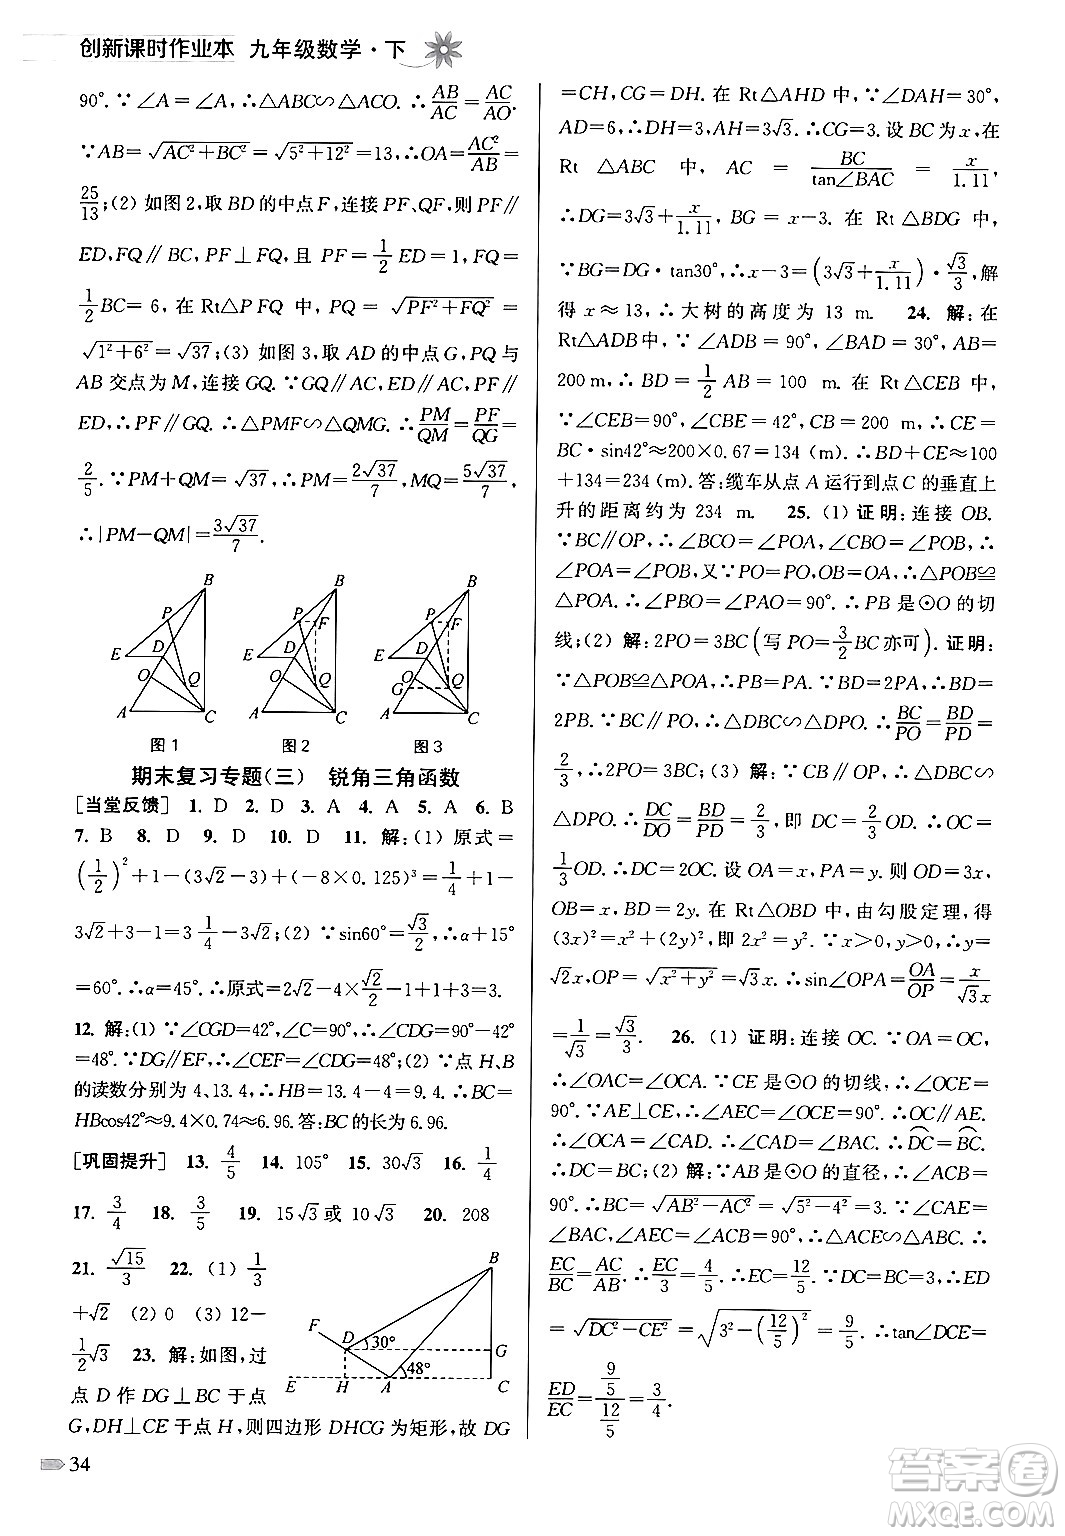 创新课时作业本 九年级数学·下
90°. ∵∠A=∠A, ∴△ABC∽△ACO. ∴AB/AC=AC/AO.
∵AB=√(AC²+BC²)=√(5²+12²)=13,∴OA=AC²/AB=
25/13;(2) 如图2,取BD的中点F,连接PF、QF,则PF∥
ED,FQ∥BC,PF⊥FQ,且 PF=1/2ED=1,FQ=
1/2BC=6,在Rt△PFQ中,PQ=√(PF²+FQ²)=
√(1²+6²)=√37;(3) 如图3,取AD的中点G,PQ与
AB交点为M,连接GQ. ∵GQ∥AC,ED∥AC,PF∥
ED,∴PF∥GQ. ∴△PMF∽△QMG. ∴PM/QM=PF/QG=
2/5. ∵PM+QM=√37,∴PM=2√37/7,QM=5√37/7.
∴|PM-QM|=3√37/7.
B
P
E
D
O
Q
A
C
图1
B
P
F
E
D
O
Q
A
C
图2
B
P
F
E
D
O
G
Q
A
C
图3
期末复习专题(三) 锐角三角函数
[当堂反馈] 1. D 2. D 3. A 4. A 5. A 6. B
7. B 8. D 9. D 10. D 11. 解:(1) 原式=
(1/2)²+1-(3√2-3)+(-8×0.125)³=1/4+1-
3√2+3-1=3 1/4-3√2;(2) ∵sin60°=√3/2,∴α+15°
=60°. ∴α=45°. ∴原式=2√2-4×√2/2+1+3=3.
12. 解:(1) ∵∠CGD=42°,∠C=90°,∴∠CDG=90°-42°
=48°. ∵DG∥EF,∴∠CEF=∠CDG=48°;(2) ∵点H、B
的读数分别为4、13.4,∴HB=13.4-4=9.4. ∴BC=
HBcos42°≈9.4×0.74≈6.96. 答:BC的长为6.96.
[巩固提升] 13. 4/5 14. 105° 15. 30√3 16. 1/4
17. 3/4 18. 3/5 19. 15√3或10√3 20. 208
21. √15/3 22. (1) 1/3
+√2 (2) 0 (3) 12-
1/2√3 23. 解:如图,过
点D作DG⊥BC于点
G,DH⊥CE于点H,则四边形DHCG为矩形,故DG
B
F
D
30°
G
48°
E
H
A
C
=CH,CG=DH. 在Rt△AHD中,∵∠DAH=30°,
AD=6,∴DH=3,AH=3√3. ∴CG=3. 设BC为x,在
Rt△ABC中,AC=BC/tan∠BAC=x/1.11,
∴DG=3√3+x/1.11,BG=x-3. 在Rt△BDG中,
∵BG=DG·tan30°,∴x-3=(3√3+x/1.11)·√3/3,解
得x≈13,∴大树的高度为13 m. 24. 解:在
Rt△ADB中,∵∠ADB=90°,∠BAD=30°,AB=
200 m,∴BD=1/2AB=100 m. 在Rt△CEB中,
∵∠CEB=90°,∠CBE=42°,CB=200 m,∴CE=
BC·sin42°≈200×0.67=134 (m). ∴BD+CE≈100
+134=234 (m). 答:缆车从点A运行到点C的垂直上
升的距离约为234 m. 25. (1) 证明:连接OB.
∵BC∥OP,∴∠BCO=∠POA,∠CBO=∠POB,∴
∠POA=∠POB,又∵PO=PO,OB=OA,∴△POB≌
△POA. ∴∠PBO=∠PAO=90°. ∴PB是⊙O的切
线;(2) 解:2PO=3BC(写PO=3/2BC亦可). 证明:
∵△POB≌△POA,∴PB=PA. ∵BD=2PA,∴BD=
2PB. ∵BC∥PO,∴△DBC∽△DPO. ∴BC/PO=BD/PD=
2/3,∴2PO=3BC;(3) 解:∵△DBC∽
△DPO. ∴DC/DO=BD/PD=2/3,即DC=2/3OD. ∴OC=
1/3OD. ∴DC=2OC. 设OA=x,PA=y. 则OD=3x,
OB=x,BD=2y. 在Rt△OBD中,由勾股定理,得
(3x)²=x²+(2y)²,即2x²=y². ∵x>0,y>0,∴y=
√2x,OP=√(x²+y²)=√3x. ∴sin∠OPA=OA/OP=x/√3x
=1/√3=√3/3. 26. (1) 证明:连接OC. ∵OA=OC,
∴∠OAC=∠OCA. ∵CE是⊙O的切线,∴∠OCE=
90°. ∵AE⊥CE,∴∠AEC=∠OCE=90°,∴OC∥AE.
∴∠OCA=∠CAD. ∴∠CAD=∠BAC. ∴DC=BC.
∴DC=BC;(2) 解:∵AB是⊙O的直径,∴∠ACB=
90°. ∴BC=√(AB²-AC²)=√(5²-4²)=3. ∵∠CAE=
∠BAC,∠AEC=∠ACB=90°,∴△ACE∽△ABC. ∴
EC/BC=AC/AB. ∴EC/3=4/5,∴EC=12/5. ∵DC=BC=3,∴ED
=√(DC²-CE²)=√(3²-(12/5)²)=9/5. ∴tan∠DCE=
ED/EC=(9/5)/(12/5)=3/4.
34
答案圈
MXQE.COM